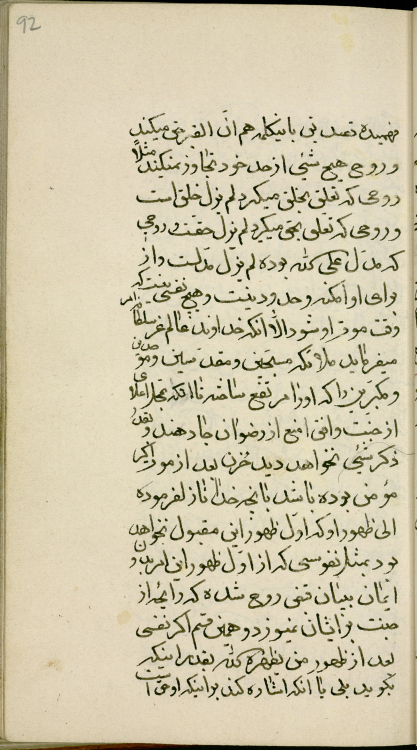 92
فهمیده تصدیق باینکلمه هم ان الفرحی میکند
و روح هیچ شیئی از حد خود تجاوز نمیکند مثلا
روحی که تعلق بخلق میگیرد لم یزل خلق است
و روحی که تعلق بحق میگیرد لم یزل حقست و روحی
که مدل علی الله بوده لم یزل مدلست و از
برای او امکنه و حدود نیست و هیچ نفسی نیست که
وقت موت او شود الا انکه خداوند عالم امر
میفرماید ملائکه مسبحین و مقدسین و
و مکبرین را که او را مرتفع ساخته تا انکه بمحل اعلا
از جنت و افق امنع از رضوان جا دهند و بعد
ذکر شیئی نخواهد دید حزن بعد از موت اگر
مؤمن بوده باشد بانچه خدا نازل فرموده
الی ظهور او که اول ظهور این مقبول نخواهد
بود بمثل نفوسی که از اول ظهور این
ایمان ببیان قبض روح شده که رایحه از
جنت بر ایشان نمیوزد و همین قسم اگر نفسی
بعد از ظهور من یظهره الله بقدر اینکه
بگوید بلی یا انکه اشاره کند بر اینکه او حق است